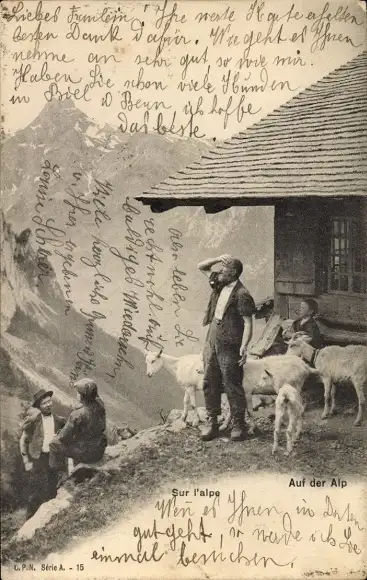 Liebes Fräulein! Ihre werte Karte erhalten
besten Dank dafür. Wie geht es Ihnen
nehme an sehr gut, so wie mir.
Haben Sie schon viele Kunden
in Biel & Bern ich hoffe
das beste.
Aber leben Sie
recht wohl auf
baldiges Wiedersehen
Viele herzliche Grüsse
v. Ihrer ergebenen
Sur l'alpe
Auf der Alp
Wen es Ihnen in
gut geht, so werde ich Sie
einmal besuchen.
C.P.N. Série A. - 15